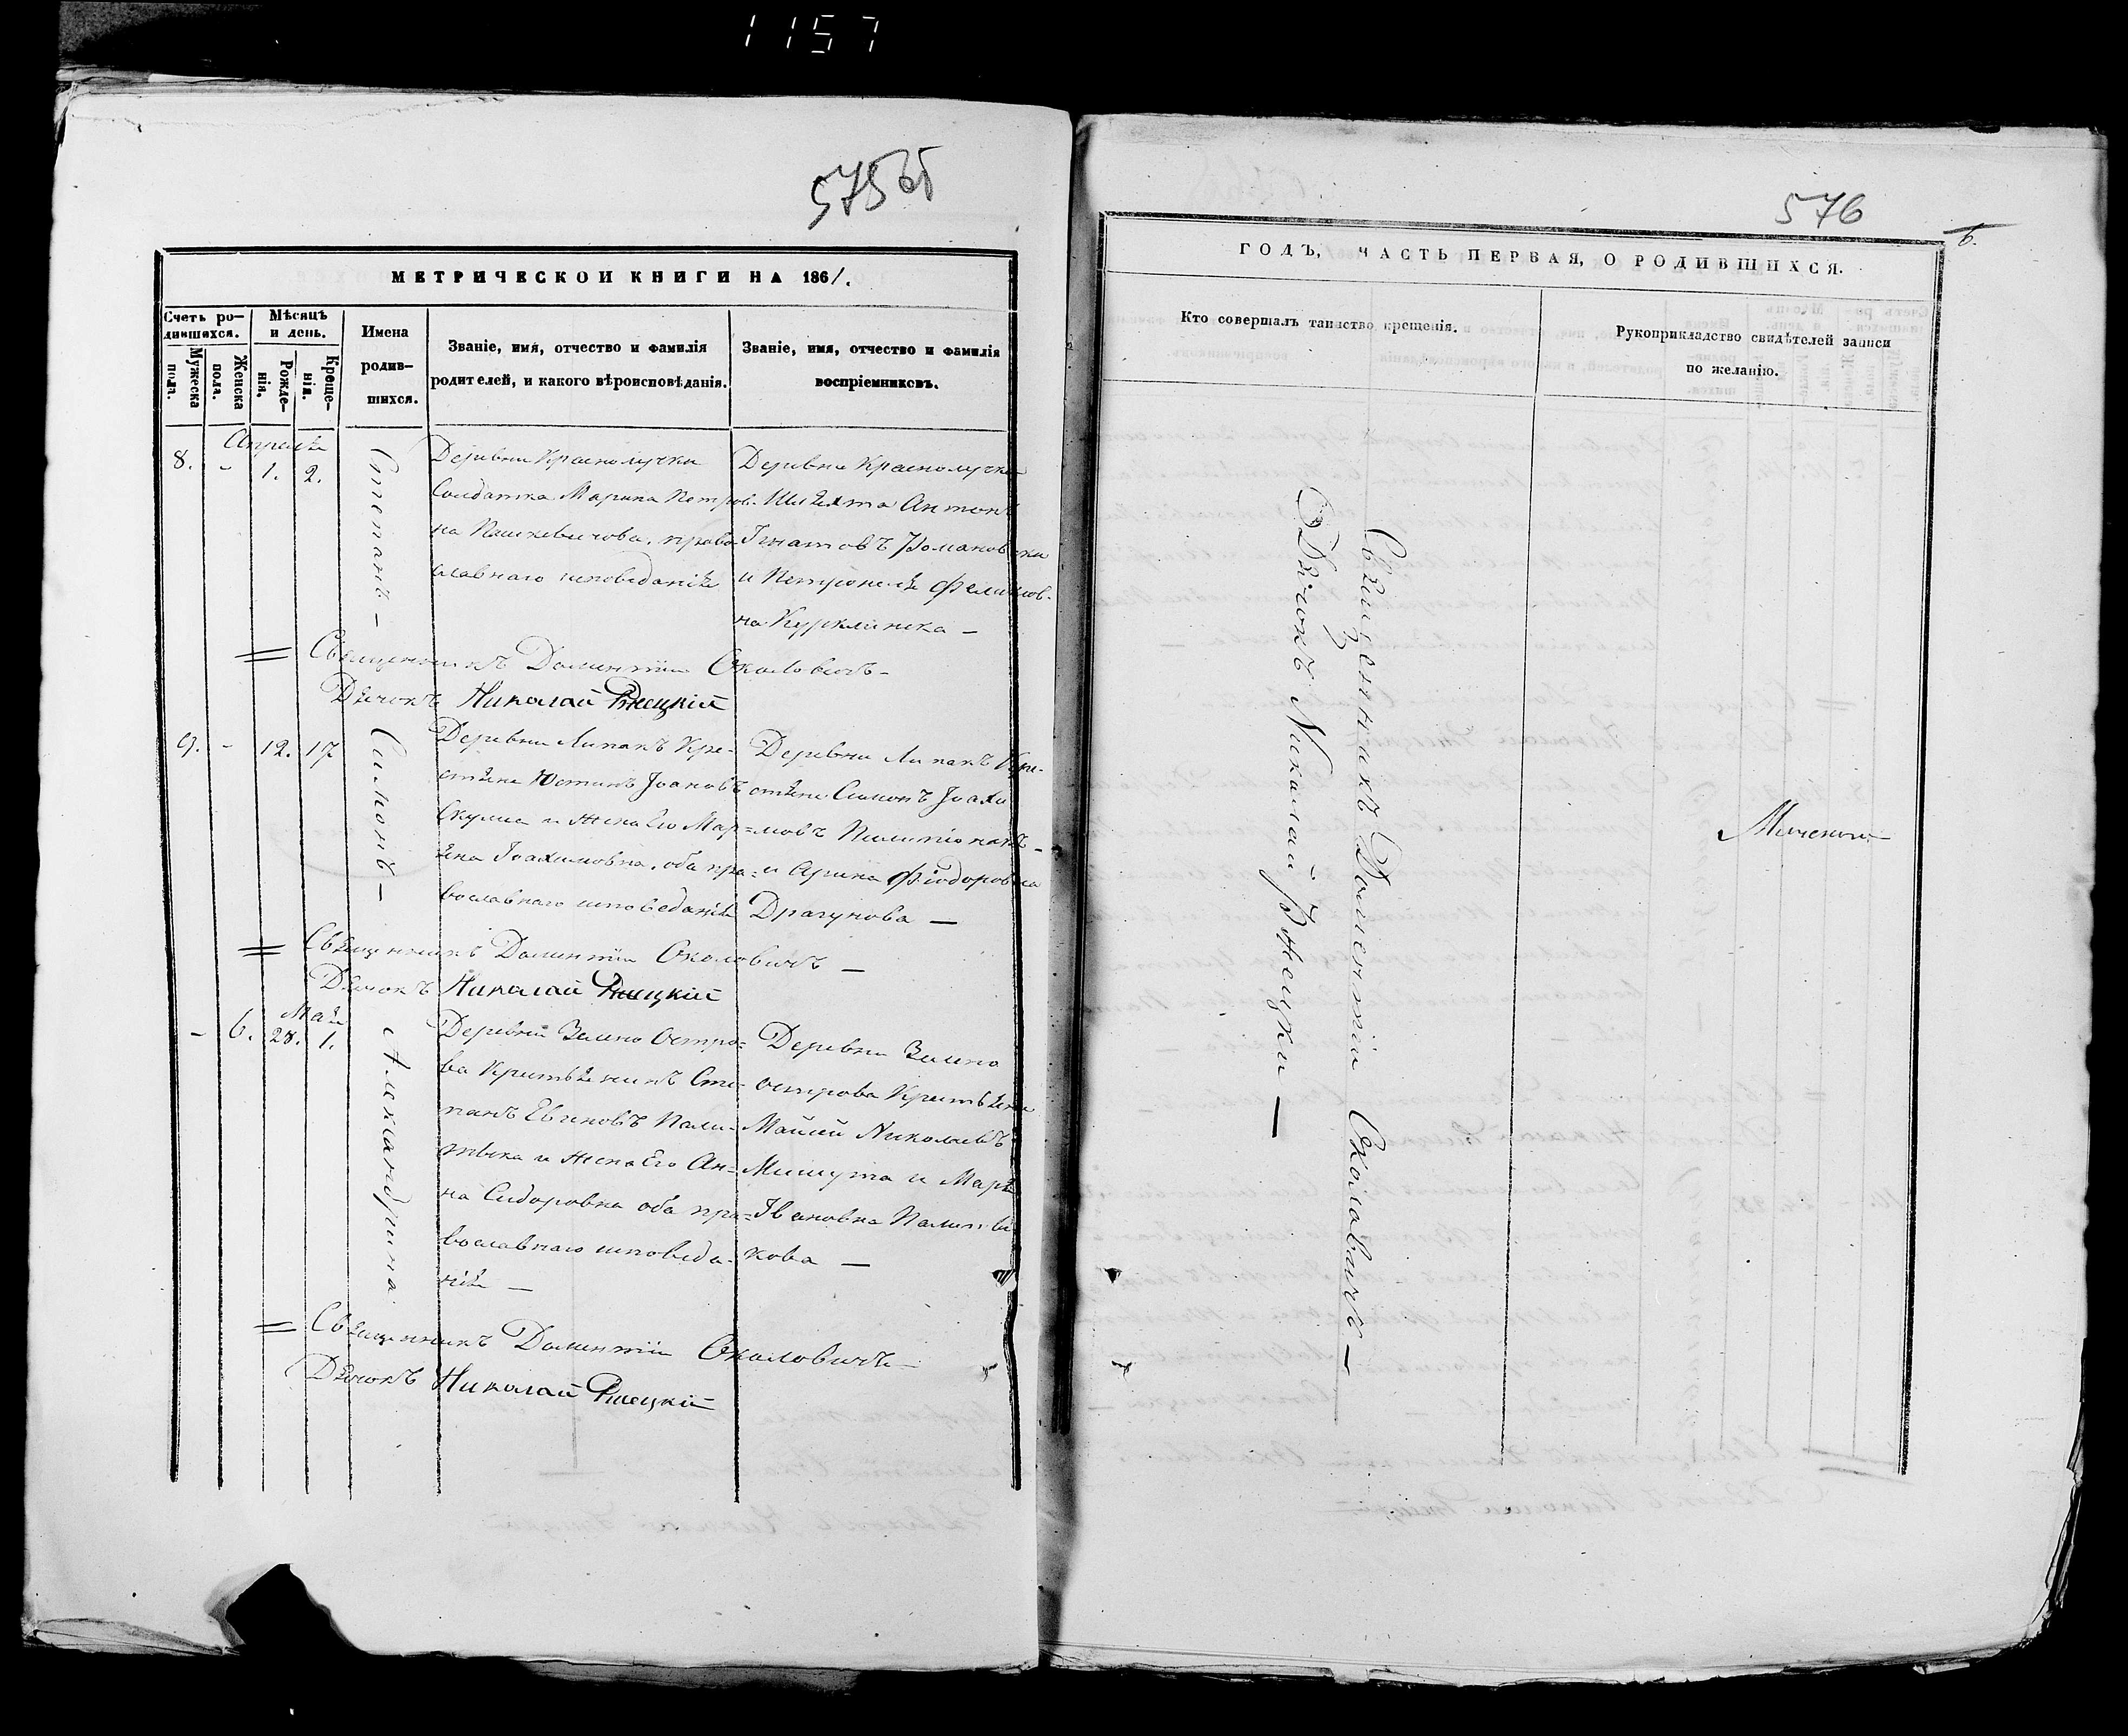 1157
575об
МЕТРИЧЕСКОИ КНИГИ НА 1861.
Счетъ ро-
дившихся.
Мужеска
пола.
Женска
пола.
Мѣсяцъ
и день.
Рожде-
нія.
Креще-
нія.
Имена
родив-
шихся.
Званіе, имя, отчество и фамилія
родителей, и какого вѣроисповѣданія.
Званіе, имя, отчество и фамилія
воспріемниковъ.
Апреля
8. - 1. 2.
Степанъ -
Деревни Краснолучки
Солдатка Марина Петров-
на Пашкевичова, право
славнаго исповеданія
Деревни Краснолучки
Шляхта Антонъ
Игнатовъ Романовски
и Петронеля
на Курклинска -
Священникъ Доментіи Околовичъ -
Дячокъ Николай Ржецкій
9. - 12. 17
Симонъ -
Деревни Липакъ Кре-
стяне Юстинъ Іоановъ
и Жена Его Мар=
Іоахимовна, оба пра=
вославнаго исповеданія
Деревни Липакъ Кре-
стяне Симонъ Іоахи
мовъ
и Арина Фіодоровна
Драгунова -
Священникъ Доментіи Околовичъ -
Дячокъ Николай Ржецкій
Мая
- 6. 28. 1.
Александрина.
Деревни Зелено Остро=
ва Крестьянинъ Сте-
панъ
и Жена Его Ан=
на Сидоровна оба пра=
вославнаго исповеда-
нія -
Деревни Зелено
острова Крестьяне
Николаевъ
и Марья
Ивановна
кова -
Священникъ Доментіи Околовичъ -
Дячокъ Николай Ржецкій
576
6.
ГОДЪ, ЧАСТЬ ПЕРВАЯ, О РОДИВШИХСЯ.
Кто совершалъ таинство крещенія.
Рукоприкладство свидѣтелей записи
по желанію.
Священникъ Доментіи Околовичъ -
Дячокъ Николай Ржецки -